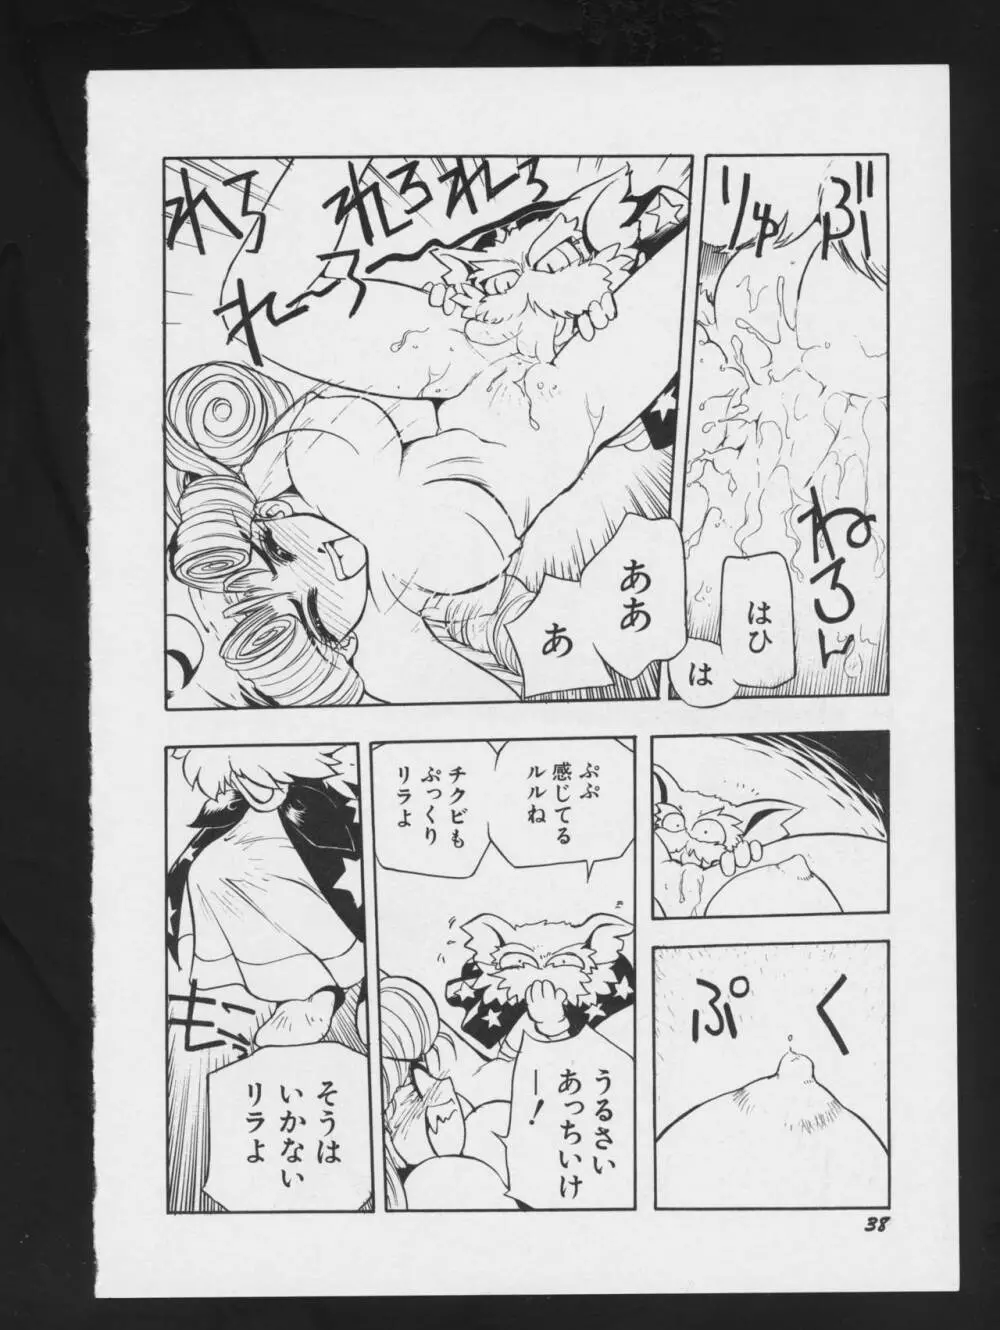 ぶ
りゅ
ねろん
はひ
は
れろ
れろれろ
れ〜ろ〜
ああ
あ
ぷ
く
ぷぷ
感じてる
ルルね
チクビも
ぷっくり
リラよ
うるさい
あっちいけ
ー！
モニ
そうは
いかない
リラよ
38